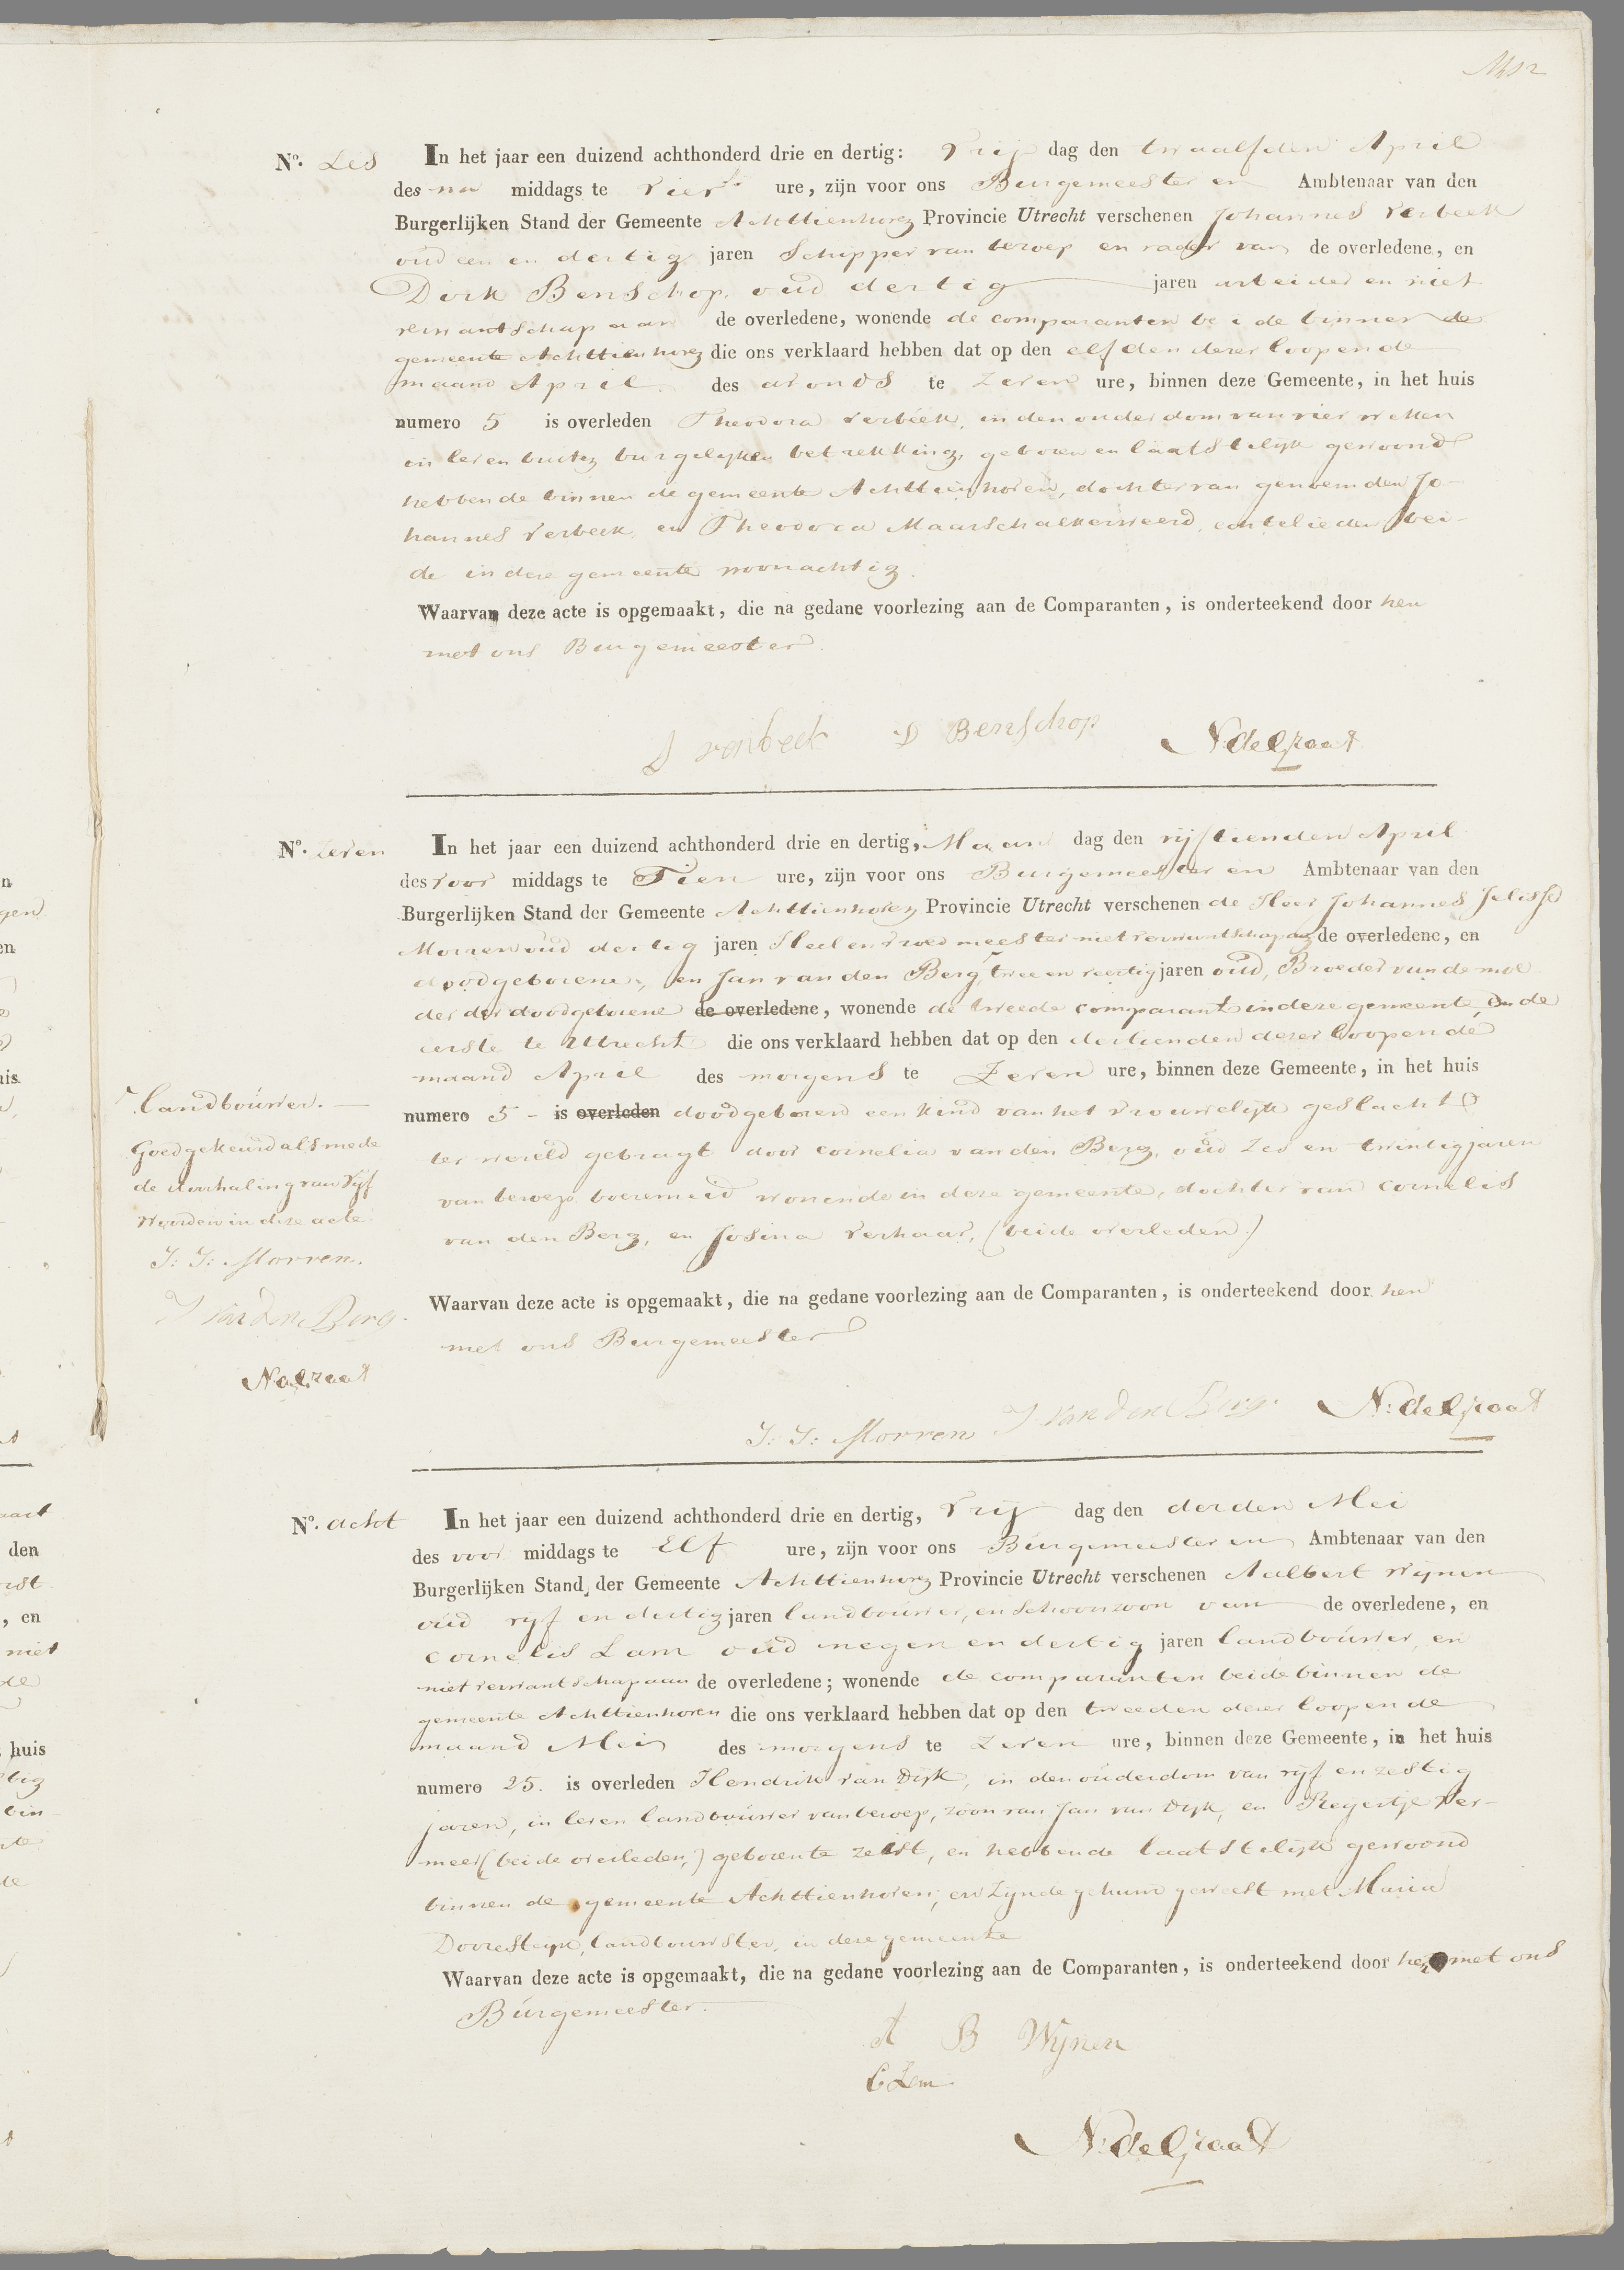 No. Zes In het jaar een duizend achthonderd drie en dertig: Vrij dag den twaalfden April
des na middags te Vier ure, zijn voor ons Burgemeester en Ambtenaar van den
Burgerlijken Stand der Gemeente Achttienhoven Provincie Utrecht verschenen Johannes Verbeek
oud een en dertig jaren Schipper van beroep en vader van de overledene, en
Dirk Benschop oud dertig jaren arbeider en niet
verwantschap aan de overledene, wonende de comparanten beide binnen de
gemeente Achttienhoven die ons verklaard hebben dat op den elfden dezer loopende
maand April des avonds te Zeven ure, binnen deze Gemeente, in het huis
numero 5 is overleden Theodora Verbeek, in den ouderdom van vier weken
in leven buiten burgelijken betrekking, geboren en laatstelijk gewoond
hebbende binnen de gemeente Achttienhoven, dochter van genoemden Jo-
hannes Verbeek en Theodora Maarschalkerweerd, echtelieden bei-
de in deze gemeente woonachtig.
Waarvan deze acte is opgemaakt, die na gedane voorlezing aan de Comparanten, is onderteekend door hen
met ons Burgemeester.
J verbeek D Benschop N: de Graaf
No. Zeven In het jaar een duizend achthonderd drie en dertig, Maan dag den vijftienden April
des voor middags te Tien ure, zijn voor ons Burgemeester en Ambtenaar van den
Burgerlijken Stand der Gemeente Achttienhoven Provincie Utrecht verschenen de Heer Johannes
Morren oud dertig jaren Heel en vroedmeester niet verwantschap aan de overledene, en
doodgeborene, en Jan van den Berg, twee en veertig jaren oud, Broeder van de moe
der der doodgeborene de overledene, wonende de tweede comparant in deze gemeente, en de
eerste te Utrecht die ons verklaard hebben dat op den dertienden dezer loopende
maand April des morgens te Zeven ure, binnen deze Gemeente, in het huis
numero 5 - is overleden doodgeboren een kind van het vrouwelijk geslacht
ter wereld gebragt door Cornelia van den Berg, oud Zes en twintig jaren
van beroep boeremeid wonende in deze gemeente, dochter van Cornelis
van den Berg, en Josina Verhaar, (beide overleden.)
Waarvan deze acte is opgemaakt, die na gedane voorlezing aan de Comparanten, is onderteekend door hen
met ons Burgemeester
J: J: Morren J van den Berg. N: de Graaf
Landbouwer. —
Goedgekeurd als mede
de doorhaling van vijf
woorden in deze acte.
J: J: Morren.
J van den Berg.
N de Graaf
No. acht In het jaar een duizend achthonderd drie en dertig, Vrij dag den derden Mei
des voor middags te Elf ure, zijn voor ons Burgemeester en Ambtenaar van den
Burgerlijken Stand der Gemeente Achttienhoven Provincie Utrecht verschenen Aalbert Wijnen
oud vijf en dertig jaren landbouwer, en Schoonzoon van de overledene, en
Cornelis Lam oud negen en dertig jaren landbouwer, en
niet verwantschap aan de overledene; wonende de comparanten beide binnen de
gemeente Achttienhoven die ons verklaard hebben dat op den tweeden dezer loopende
maand Mei des morgens te Zeven ure, binnen deze Gemeente, in het huis
numero 25. is overleden Hendrik van Dijk, in den ouderdom van vijf en zestig
jaren, in leven landbouwer van beroep, zoon van Jan van Dijk, en Regertje Ver-
meer (beide overleden,) geboren te Zeist, en hebbende laatstelijk gewoond
binnen de gemeente Achttienhoven, en zijnde gehuwd geweest met Maria
Dooresteijn, landbouwster, in deze gemeente
Waarvan deze acte is opgemaakt, die na gedane voorlezing aan de Comparanten, is onderteekend door hen met ons
Burgemeester.
A B Wijnen
C Lam
N: de Graaf